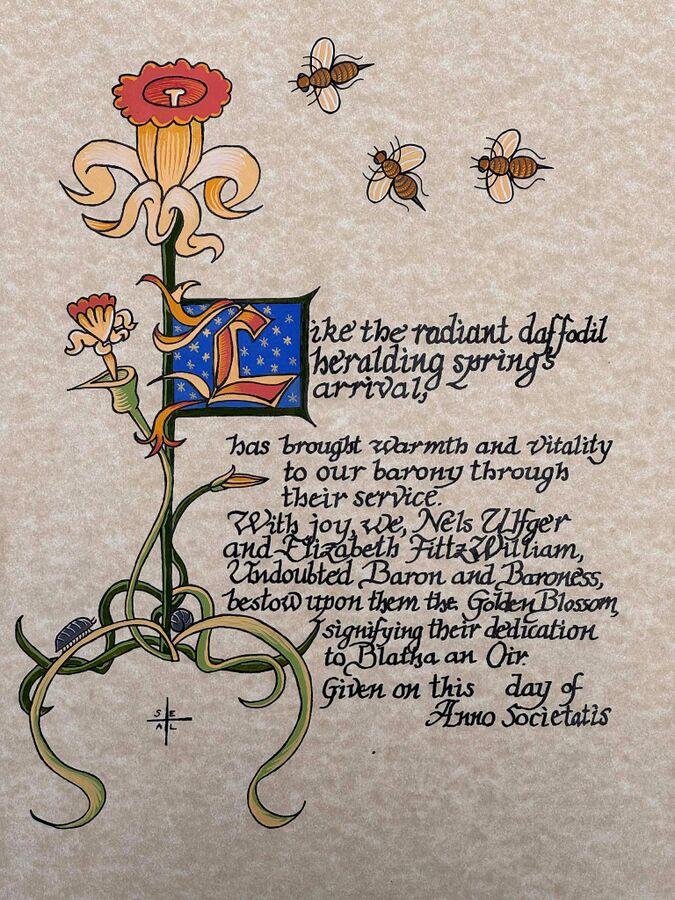 Like the radiant daffodil
heralding spring's
arrival,
has brought warmth and vitality
to our barony through
their service.
With joy, we, Nels Ulfger
and Elizabeth FittzWilliam,
Undoubted Baron and Baroness,
bestow upon them the Golden Blossom,
signifying their dedication
to Blatha an Oir.
Given on this day of
Anno Societatis
S E
A L